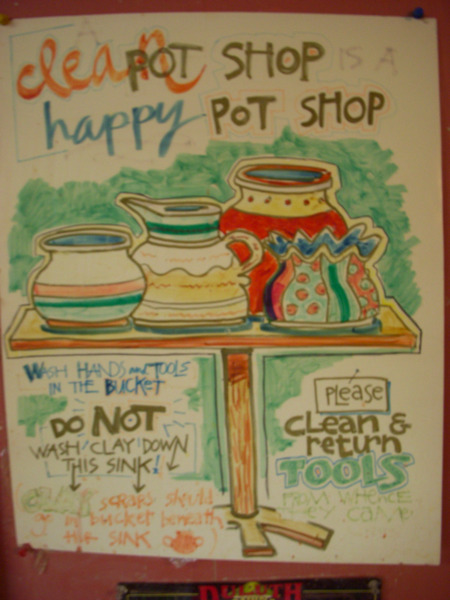 A
clean POT SHOP IS A
happy POT SHOP
WASH HANDS and TOOLS
IN THE BUCKET
DO NOT
WASH CLAY DOWN
THIS SINK!
CLAY scraps should
go in bucket beneath
the SINK
PLEASE
CLEAN &
return
TOOLS
FROM WHENCE
THEY CAME